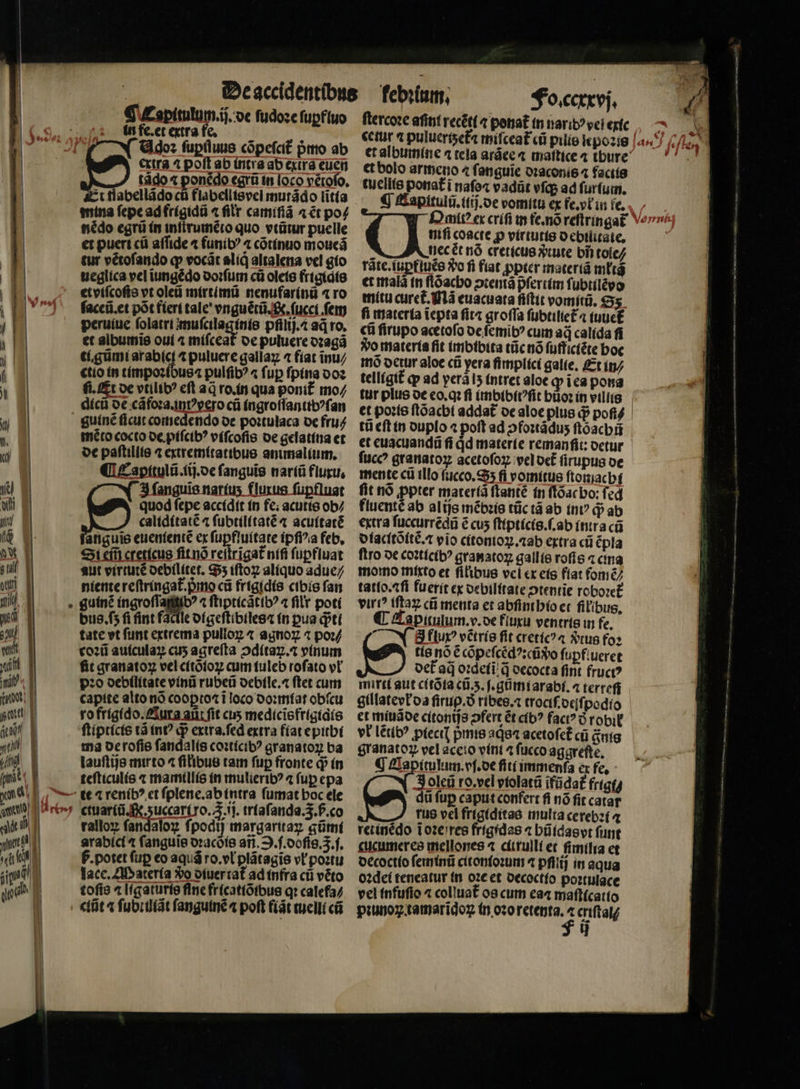 De accidentibus febrium, Fo.ccxxvj.
¶ Capitulum.ij. de sudore supfluo
in se. et extra se.
SUdor supfluus cōpescit͛ p̄mo ab
extra ⁊ post ab intra ab extra eueñ
tādo ⁊ ponēdo egrū in loco vētoso.
Et flabellādo cū flabellis vel mutādo litia
mina sepe ad frigidū ⁊ silr camisiā ⁊ ēt po⸗
nēdo egrū in instrumēto quo vtūtur puelle
et pueri cū asside ⁊ funibꝰ ⁊ cōtinuo moueā
tur vētosando ꝙ vocāt aliq̄ altalena vel gio
ueglica vel iungēdo dorsum cū oleis frigidis
et viscosis vt oleū mirtimū nenufarinū ⁊ ro
saceū. et pōt fieri tale' vnguētū. ℞. succi sem
peruiue solatri muscilaginis psilij. ⁊ aq̄ ro.
et albumis oui ⁊ misceat͛ de puluere dragā
ti. gūmi arabici ⁊ puluere gallaꝝ ⁊ fiat inū⸗
ctio in timporibus ⁊ pulsibꝰ ⁊ suꝑ spina dor
si. Et de vtilibꝰ est aq̄ ro. in qua ponit͛ mo⸗
dicū de cāfora. intꝰ vero cū ingrossantibꝰ san
guinē sicut comedendo de portulaca de fru⸗
mēto cocto de piscibꝰ viscosis de gelatina et
de pastillis ⁊ extremitatibus animalium.
¶ Capitulū.iij. de sanguīs nariū fluxu.
SI sanguis narius fluxus supfluat
quod sepe accidit in se. acutis ob⸗
caliditatē ⁊ subtilitatē ⁊ acuitatē
sanguis eueniente ex supfluitate ipsiꝰ a feb.
Si em̄ creticus fit nō restrīgat͛ nisi supfluat
aut virtutē debilitet. Sꝫ istoꝝ aliquo adue⸗
niente restringat͛. p̄mo cū frigidis cibis san
guinē ingrossantibꝰ ⁊ stipticātibꝰ ⁊ silr poti
bus. sꝫ si sint facile digestibiles ⁊ in pua q̄ti
tate vt sunt extrema pulloꝝ ⁊ agnoꝝ ⁊ por⸗
corū auiculaꝝ cuꝫ agresta ↄditaꝝ. ⁊ vinum
fit granatoꝝ vel citōioꝝ cum iuleb rosato vł
pro debilitate vinū rubeū debile. ⁊ stet cum
capite alto nō cooptoꝛ ī loco dormiat obscu
ro frigido. Aura aūt fit cuꝫ medicīs frigidis
stipticis tā intꝰ ꝙ̄ extra. sed extra fiat epithi
ma de rosis sandalis corticibꝰ granatoꝝ ba
laustijs mirto ⁊ silibus tam suꝑ fronte ꝙ̄ in
testiculis ⁊ mamillis in mulieribꝰ ⁊ suꝑ epa
te ⁊ renibꝰ et splene. ab intra sumat hoc ele
ctuariū. ℞. zuccari ro. ℥.ij. triasanda. ℥.ß. co
ralloꝝ sandaloꝝ spodij margaritaꝝ gūmi
arabici ⁊ sanguis dracōis añ. ℈.ſ. dosis. ℥.ſ.
ß. potet suꝑ eo aquā ro. vł plātagīs vł portu
lace. Materia ṽo diuertat͛ ad infra cū vēto
sosis ⁊ ligaturis sine fricatiōibus qꝛ calefa⸗
ciūt ⁊ subtiliāt sanguinē ⁊ post fiāt tuelli cū
stercore asini recēti ⁊ ponat͛ in naribꝰ vel exic
cetur ⁊ puluerizet͛ ⁊ misceat͛ cū pilis leporis
et albumine ⁊ tela arāee ⁊ mastice ⁊ thure
et bolo armeno ⁊ sanguie draconis ⁊ factis
tuellis ponat͛ ī naso ⁊ vadūt vsꝙ ad sursum.
¶ Capitulū.iiij. de vomitu ex fe. vł in fe.
VOmitꝰ ex crisi in fe. nō restringat͛
nisi coacte ꝓ virtutis debilitate,
nec ēt nō creticus ṽtute bñ tole⸗
rāte. supfluēs ṽo si fiat ꝓpter materiā mltā
et malā in stōacho ↄtentā p̱sertim subtilē vo
mitu curet͛. Nā euacuata sistit vomitū. Sꝫ
si materia īepta fit ⁊ grossa subtiliet͛ ⁊ iuuet͛
cū sirupo acetoso de semibꝰ cum aq̄ calida si
ṽo materia sit imbibita tūc nō sufficiēte hoc
mō detur aloe cū yera simplici galie. Et in⸗
telligit͛ ꝙ ad yerā lꝫ intret aloe ꝙ ī ea pona
tur plus de eo. qꝛ si imbibitꝰ sit hūor in villis
et poris stōachi addat͛ de aloe plus ꝙ̄ posi⸗
tū est in duplo ⁊ post ad ↄfortāduꝫ stōachū
et euacuandū si q̄d materie remansit: detur
succꝰ granatoꝝ acetosoꝝ vel det͛ sirupus de
mente cū illo succo. Sꝫ si vomitus stomachi
fit nō ꝓpter materiā stantē in stōacho: sed
fluentē ab alijs mēbris tūc tā ab intꝰ ꝙ̄ ab
extra succurrēdū ē cuꝫ stipticis. s. ab intra cū
diacitōitē. ⁊ vio citonioꝝ. ⁊ ab extra cū ēpla
stro de corticibꝰ granatoꝝ gallis rosis ⁊ cina
momo mixto et silibus vel ex eis fiat fomē⸗
tatio. ⁊ si fuerit ex debilitate ↄtentie roboret͛
virtꝰ istaꝝ cū menta et absinthio et silibus.
¶ Capitulum.v. de fluxu ventris in fe.
SI fluxꝰ vētris fit creticꝰ ⁊ ṽtus for
tis nō ē cōpescēdꝰ: cū ṽo supflueret
det͛ aq̄ ordei ī q̄ decocta sint fructꝰ
mirti aut citōia cū.ꝫ.ſ. gūmi arabi. ⁊ terre si
gillate vł da sirup. đ ribes. ⁊ troci. de spodio
et miuāde citonijs ↄfert ēt cibꝰ factꝰ đ robil
vł lētibꝰ piecti p̄mis aq̄s ⁊ acetosēt͛ cū q̄nis
granatoꝝ vel aceto vini ⁊ succo aggreste.
¶ Capitulum.vj. de siti immensa ex fe.
SI oleū ro. vel violatū ifūdat͛ frigi⸗
dū suꝑ caput confert si nō fit catar
rus vel frigiditas multa cerebri ⁊
retinēdo ī ore res frigidas ⁊ hūidas vt sunt
cucumeres mellones ⁊ citrulli et similia et
decoctio seminū citoniorum ⁊ psilij in aqua
ordei teneatur in ore et decoctio portulace
vel infusio ⁊ colluat͛ os cum ea ⁊ masticatio
prunoꝝ tamarīdoꝝ in ore retenta. ⁊ cristal⸗
F ij